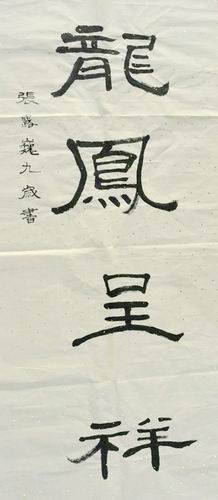 龍鳳呈祥
張露巍九歲書